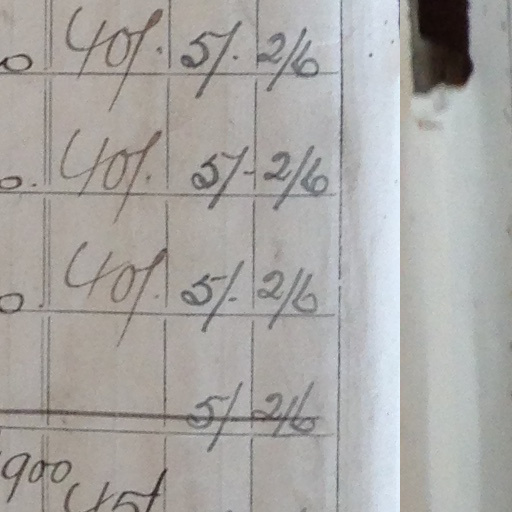 o 40/. 5/. 2/6
o. 40/. 5/- 2/6
o. 40/. 5/. 2/6
5/ 2/6
900
45/